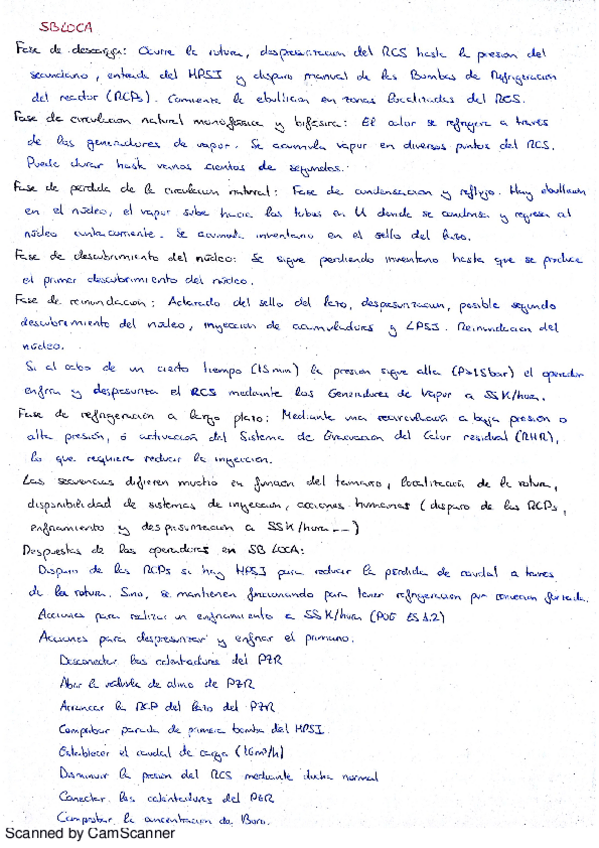 SBLOCA
Fase de descarga: Ocurre la rotura, despresurización del RCS hasta la presion del
secundario, entrada del HPSI y disparo manual de las Bombas de Refrigeracion
del reactor (RCPs). Comienza la ebullicion en zonas localizadas del RCS.
Fase de circulacion natural monofásica y bifásica: El calor se refrigera a traves
de los generadores de vapor. Se acumula vapor en diversos puntos del RCS.
Puede durar hasta varios cientos de segundos.
Fase de perdida de la circulacion natural: Fase de condensacion y reflujo. Hay ebullicion
en el núcleo, el vapor sube hacia los tubos en U donde se condensa y regresa al
núcleo contracorriente. Se acumula inventario en el sello del lazo.
Fase de descubrimiento del núcleo: Se sigue perdiendo inventario hasta que se produce
el primer descubrimiento del núcleo.
Fase de reinundacion: Aclarado del sello del lazo, despresurizacion, posible segundo
descubrimiento del núcleo, inyeccion de acumuladores y LPSI. Reinundacion del
núcleo.
Si al cabo de un cierto tiempo (15min) la presion sigue alta (P>15bar) el operador
enfria y despresuriza el RCS mediante los Generadores de Vapor a 55K/hora.
Fase de refrigeracion a largo plazo: Mediante una recirculación a baja presion o
alta presión, ó activacion del Sistema de Evacuacion del Calor residual (RHR),
lo que requiere reducir la inyeccion.
Las secuencias difieren mucho en funcion del tamaño, localización de la rotura,
disponibilidad de sistemas de inyección, acciones humanas (disparo de las RCPs,
enfriamiento y despresurizacion a 55K/hora...)
Respuestas de los operadores en SBLOCA:
Disparo de las RCPs si hay HPSI para reducir la perdida de caudal a traves
de la rotura. Sino, se mantienen funcionando para tener refrigeracion por conveccion forzada.
Acciones para realizar un enfriamiento a 55K/hora (POE ES 1.2)
Acciones para despresurizar y enfriar el primario.
Desconectar los calentadores del PZR
Abrir la valvula de alivio de PZR
Arrancar la RCP del lazo del PZR
Comprobar parada de primera bomba del HPSI.
Establecer el caudal de carga (16m³/h)
Disminuir la presion del RCS mediante ducha normal
Conectar los calentadores del PZR
Comprobar la concentracion de Boro.
Scanned by CamScanner